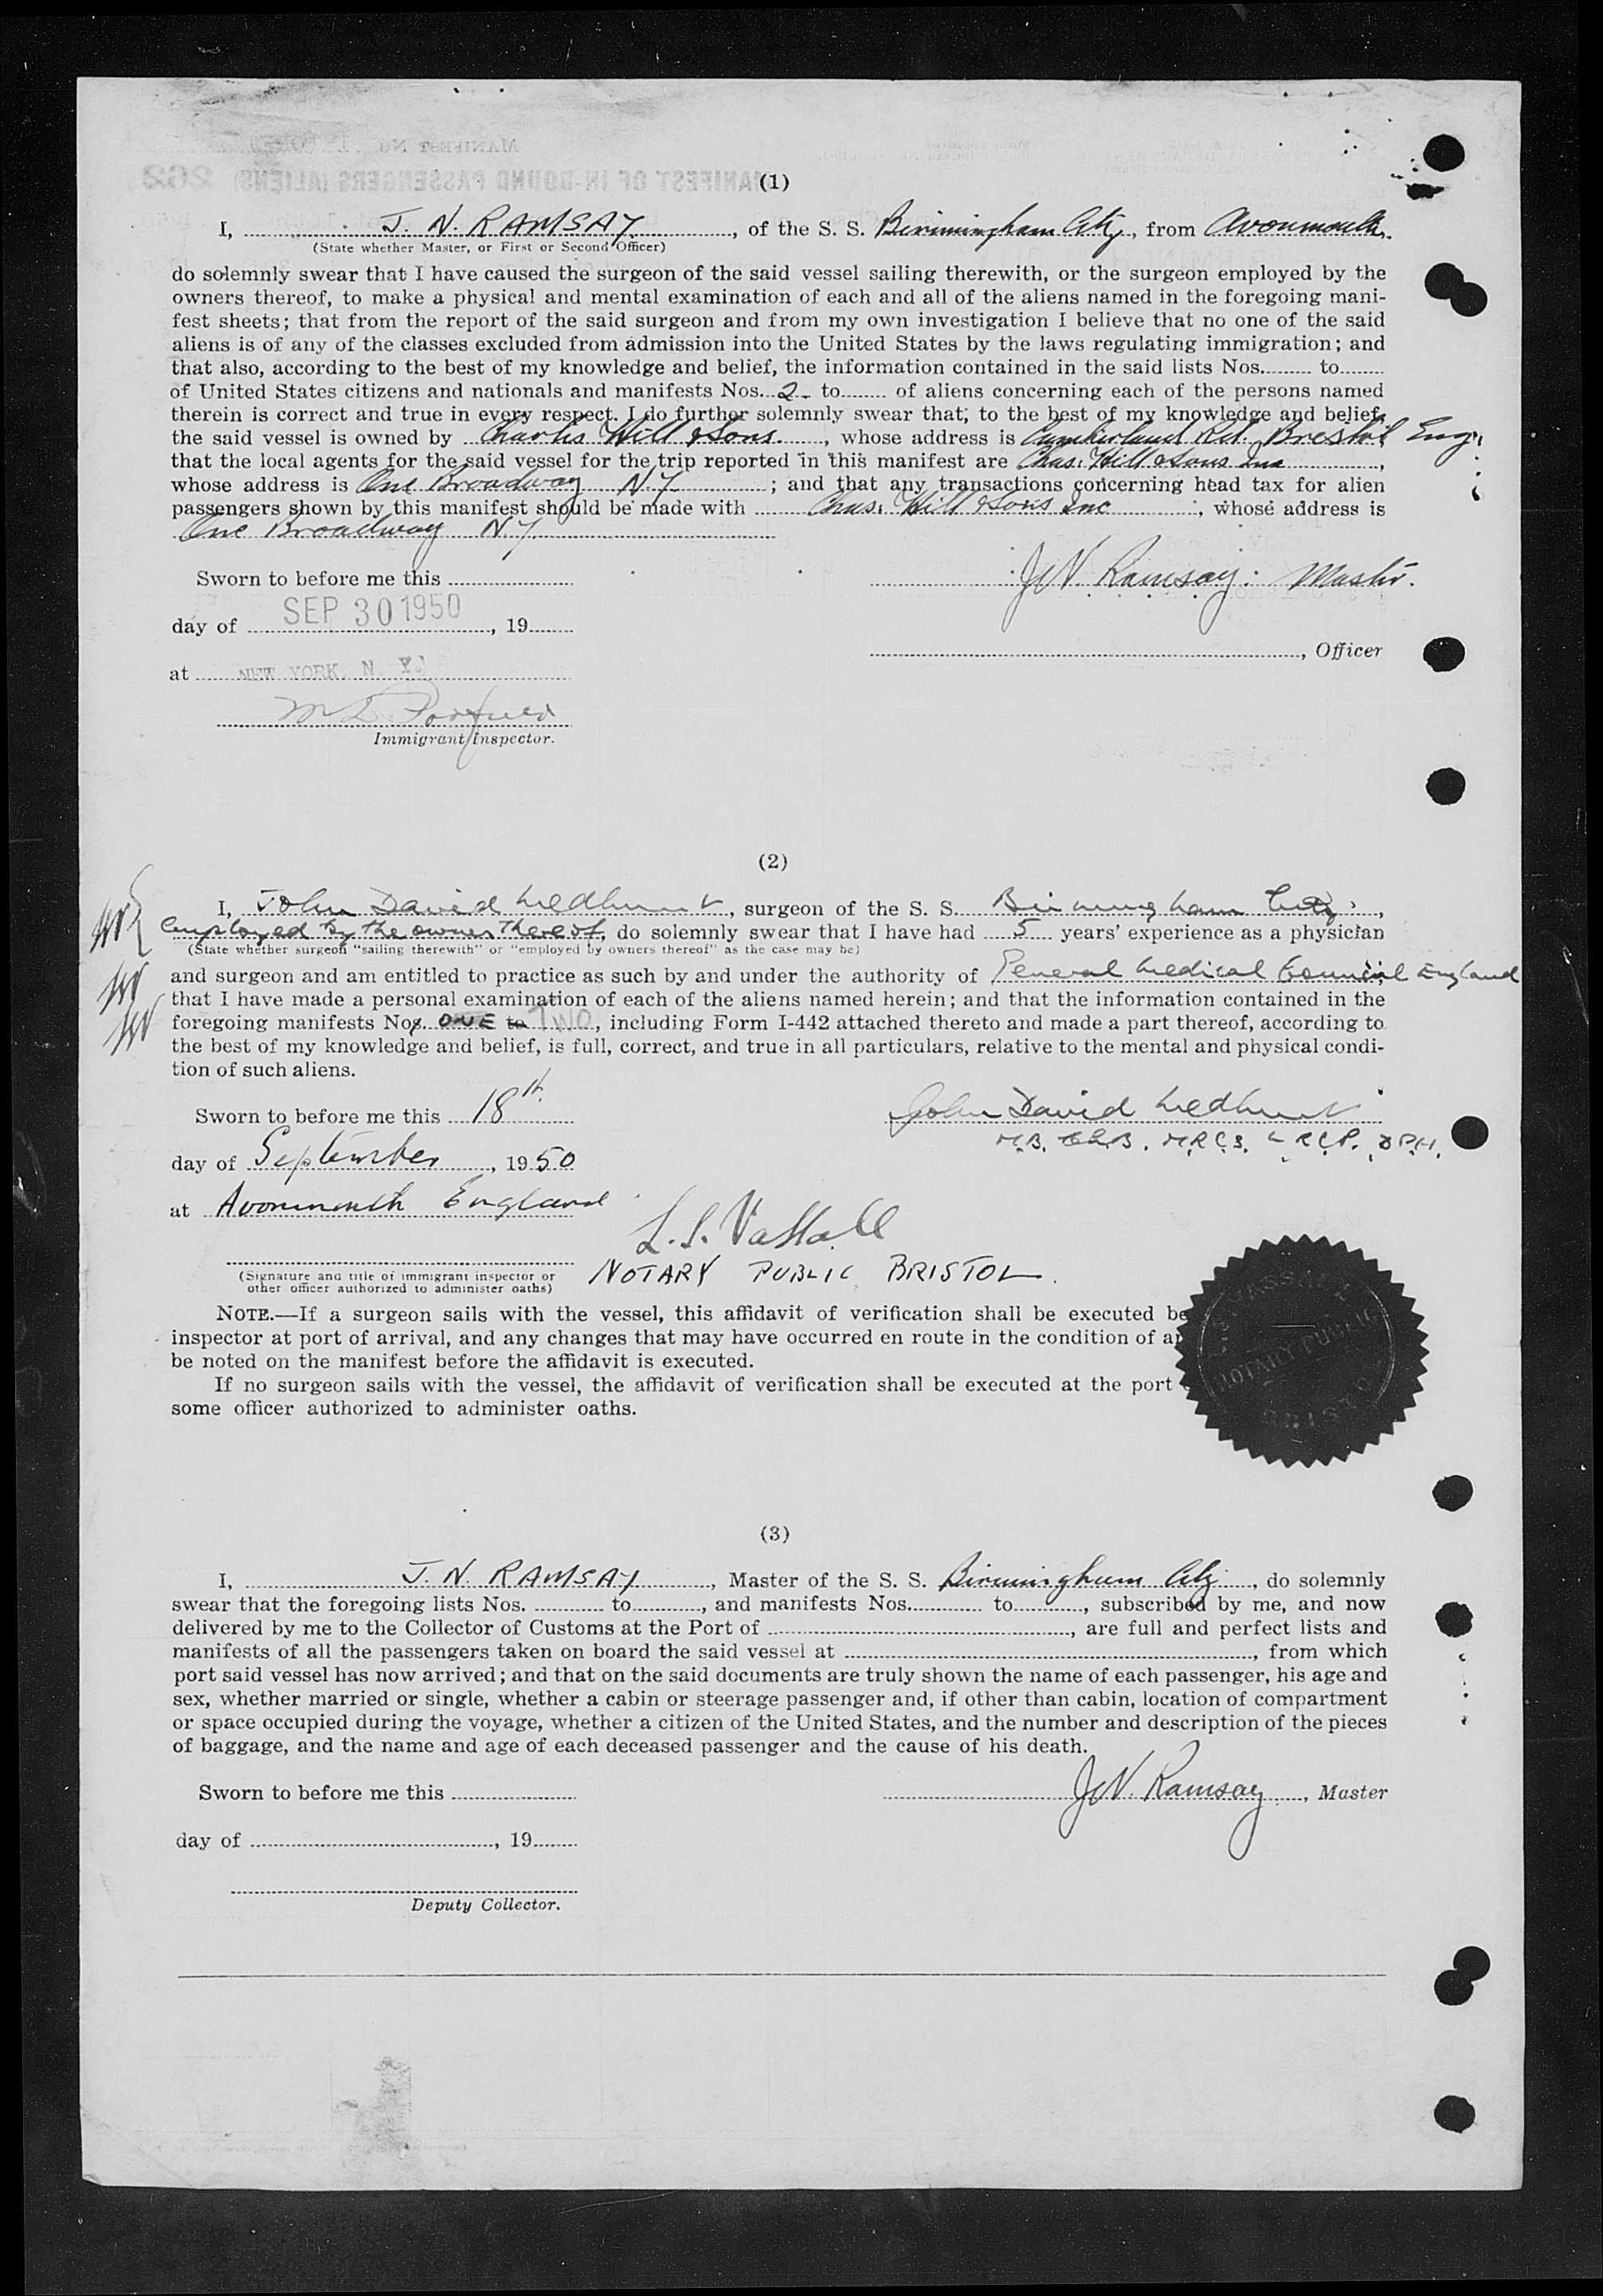 (1)
I, J. N. RAMSAY, of the S. S. Birimingham City, from Avonmouth.
(State whether Master, or First or Second Officer)
do solemnly swear that I have caused the surgeon of the said vessel sailing therewith, or the surgeon employed by the
owners thereof, to make a physical and mental examination of each and all of the aliens named in the foregoing mani-
fest sheets; that from the report of the said surgeon and from my own investigation I believe that no one of the said
aliens is of any of the classes excluded from admission into the United States by the laws regulating immigration; and
that also, according to the best of my knowledge and belief, the information contained in the said lists Nos. to
of United States citizens and nationals and manifests Nos. 2 to of aliens concerning each of the persons named
therein is correct and true in every respect. I do further solemnly swear that, to the best of my knowledge and belief,
the said vessel is owned by Charles Hill & Sons, whose address is Cumberland Rd. Bristol Eng.
that the local agents for the said vessel for the trip reported in this manifest are Chas. Hill & Sons Inc,
whose address is One Broadway N.Y; and that any transactions concerning head tax for alien
passengers shown by this manifest should be made with Chas. Hill & Sons Inc, whose address is
One Broadway N.Y.
Sworn to before me this
J N Ramsay. Master.
day of SEP 30 1950, 19
, Officer
at NEW YORK, N. Y.
Immigrant Inspector.
(2)
I, John David, surgeon of the S. S. Birmingham City,
employed by the owner thereof, do solemnly swear that I have had 5 years' experience as a physician
(State whether surgeon "sailing therewith" or "employed by owners thereof" as the case may be)
and surgeon and am entitled to practice as such by and under the authority of General Medical Council England
that I have made a personal examination of each of the aliens named herein; and that the information contained in the
foregoing manifests Nos. ONE to TWO, including Form I-442 attached thereto and made a part thereof, according to
the best of my knowledge and belief, is full, correct, and true in all particulars, relative to the mental and physical condi-
tion of such aliens.
Sworn to before me this 18th
John David
M.B. Ch.B. M.R.C.S. L.R.C.P. D.P.H.
day of September, 1950
at Avonmouth England
L.S. Vassall
(Signature and title of immigrant inspector or
other officer authorized to administer oaths)
NOTARY PUBLIC BRISTOL.
NOTE.—If a surgeon sails with the vessel, this affidavit of verification shall be executed be
inspector at port of arrival, and any changes that may have occurred en route in the condition of a
be noted on the manifest before the affidavit is executed.
If no surgeon sails with the vessel, the affidavit of verification shall be executed at the port
some officer authorized to administer oaths.
VASSALL
NOTARY PUBLIC
BRISTOL
(3)
I, J. N. RAMSAY, Master of the S. S. Birmingham City, do solemnly
swear that the foregoing lists Nos. to, and manifests Nos. to, subscribed by me, and now
delivered by me to the Collector of Customs at the Port of, are full and perfect lists and
manifests of all the passengers taken on board the said vessel at, from which
port said vessel has now arrived; and that on the said documents are truly shown the name of each passenger, his age and
sex, whether married or single, whether a cabin or steerage passenger and, if other than cabin, location of compartment
or space occupied during the voyage, whether a citizen of the United States, and the number and description of the pieces
of baggage, and the name and age of each deceased passenger and the cause of his death.
Sworn to before me this
J N. Ramsay, Master
day of, 19
Deputy Collector.